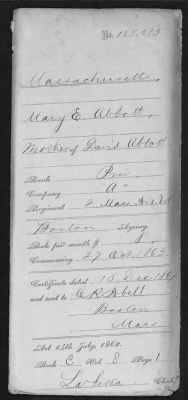 No. 105,083
Massachusetts,
Mary E. Abbott,
Mother of David Abbott
Rank Priv
Company "A"
Regiment 2 Mass
Boston Agency
Rate per month $
Commencing 27 Oct 1863
Certificate dated 15 Dec
and sent to
Boston
Mass
Act 14th July, 1862.
Book C Vol. 8 Page 1
Clerk